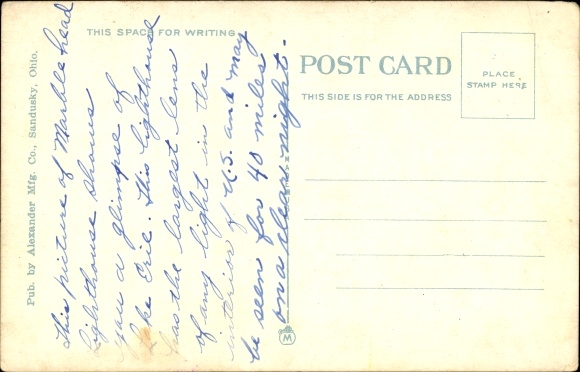 THIS SPACE FOR WRITING
POST CARD
THIS SIDE IS FOR THE ADDRESS
PLACE
STAMP HERE
Pub. by Alexander Mfg. Co., Sandusky, Ohio.
This picture of Marblehead
lighthouse shows
you a glimpse of
Lake Erie. This lighthouse
has the largest lens
of any light in the
interior of U.S. and may
be seen for 40 miles
on a clear night.
M